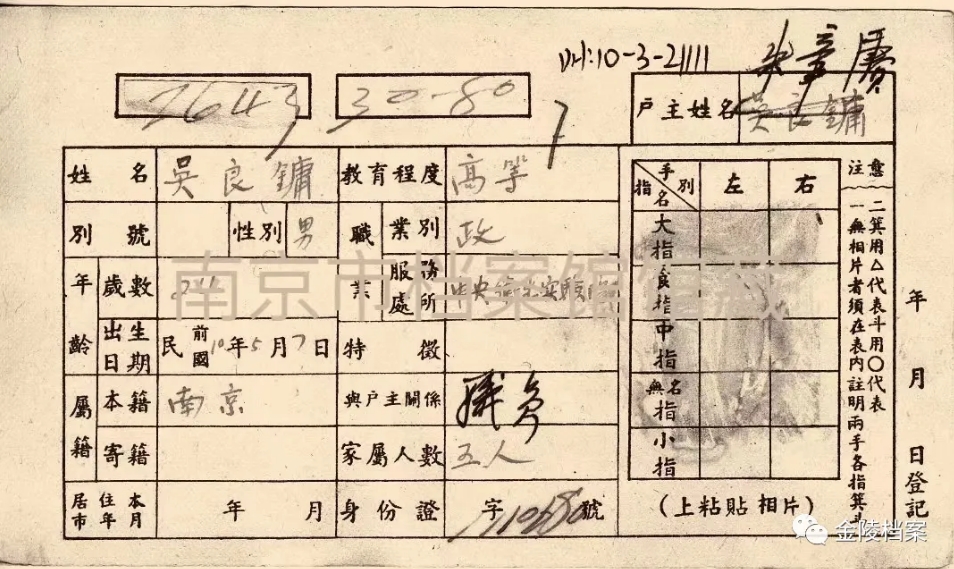 10-3-21111
2643 30-80
戶主姓名 吳良鏞
姓名 吳良鏞 教育程度 高等
別號 性別 男 職業 業別 政
年齡 歲數 服務處所 中央衛生實驗院
出生日期 民前國10年5月7日 特徵
屬籍 本籍 南京 與戶主關係 職員
寄籍 家屬人數 五人
居住本市年月 年 月 身份證 字 號
手別 指名 左 右
大指
食指
中指
無名指
小指
(上粘貼相片)
注意
一無相片者須在表內註明兩手各指箕斗
二箕用△代表斗用〇代表
年 月 日登記
南京市档案馆馆藏
金陵档案